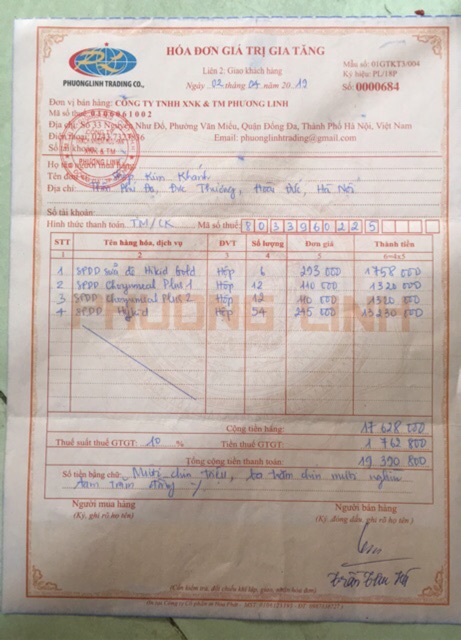 HÓA ĐƠN GIÁ TRỊ GIA TĂNG
Mẫu số: 01GTKT3/004
Liên 2: Giao khách hàng
Ký hiệu: PL/18P
PHUONGLINH TRADING CO.,
Ngày 02 tháng 04 năm 2019
Số: 0000684
Đơn vị bán hàng: CÔNG TY TNHH XNK & TM PHƯƠNG LINH
Mã số thuế:
Địa chỉ: Số 33 Nguyễn Như Đổ, Phường Văn Miếu, Quận Đống Đa, Thành Phố Hà Nội, Việt Nam
Điện thoại: Email: phuonglinhtrading@gmail.com
Số tài khoản:
XNK & TM
PHƯƠNG LINH
Họ tên người mua hàng
Tên đơn vị: Kim Khánh
Địa chỉ: Phú Đa, Đức Thượng, Hoài Đức, Hà Nội
Số tài khoản:
Hình thức thanh toán: TM/CK Mã số thuế: 8033960225
STT Tên hàng hóa, dịch vụ ĐVT Số lượng Đơn giá Thành tiền
1 2 3 4 5 6=4x5
1 SPDD sữa dê Hikid Gold Hộp 6 293 000 1 758 000
2 SPDD Plus 1 Hộp 12 110 000 1 320 000
3 SPDD Plus 2 Hộp 12 110 000 1 320 000
4 SPDD Hikid Hộp 54 245 000 13 230 000
PHUONG LINH
Cộng tiền hàng: 17 628 000
Thuế suất thuế GTGT: 10 % Tiền thuế GTGT: 1 762 800
Tổng cộng tiền thanh toán: 19 390 800
Số tiền bằng chữ: Mười chín triệu, ba trăm chín mươi nghìn
tám trăm đồng
Người mua hàng Người bán hàng
(Ký, ghi rõ họ tên) (Ký, đóng dấu, ghi rõ họ tên)
(Cần kiểm tra, đối chiếu khi lập, giao, nhận hóa đơn)